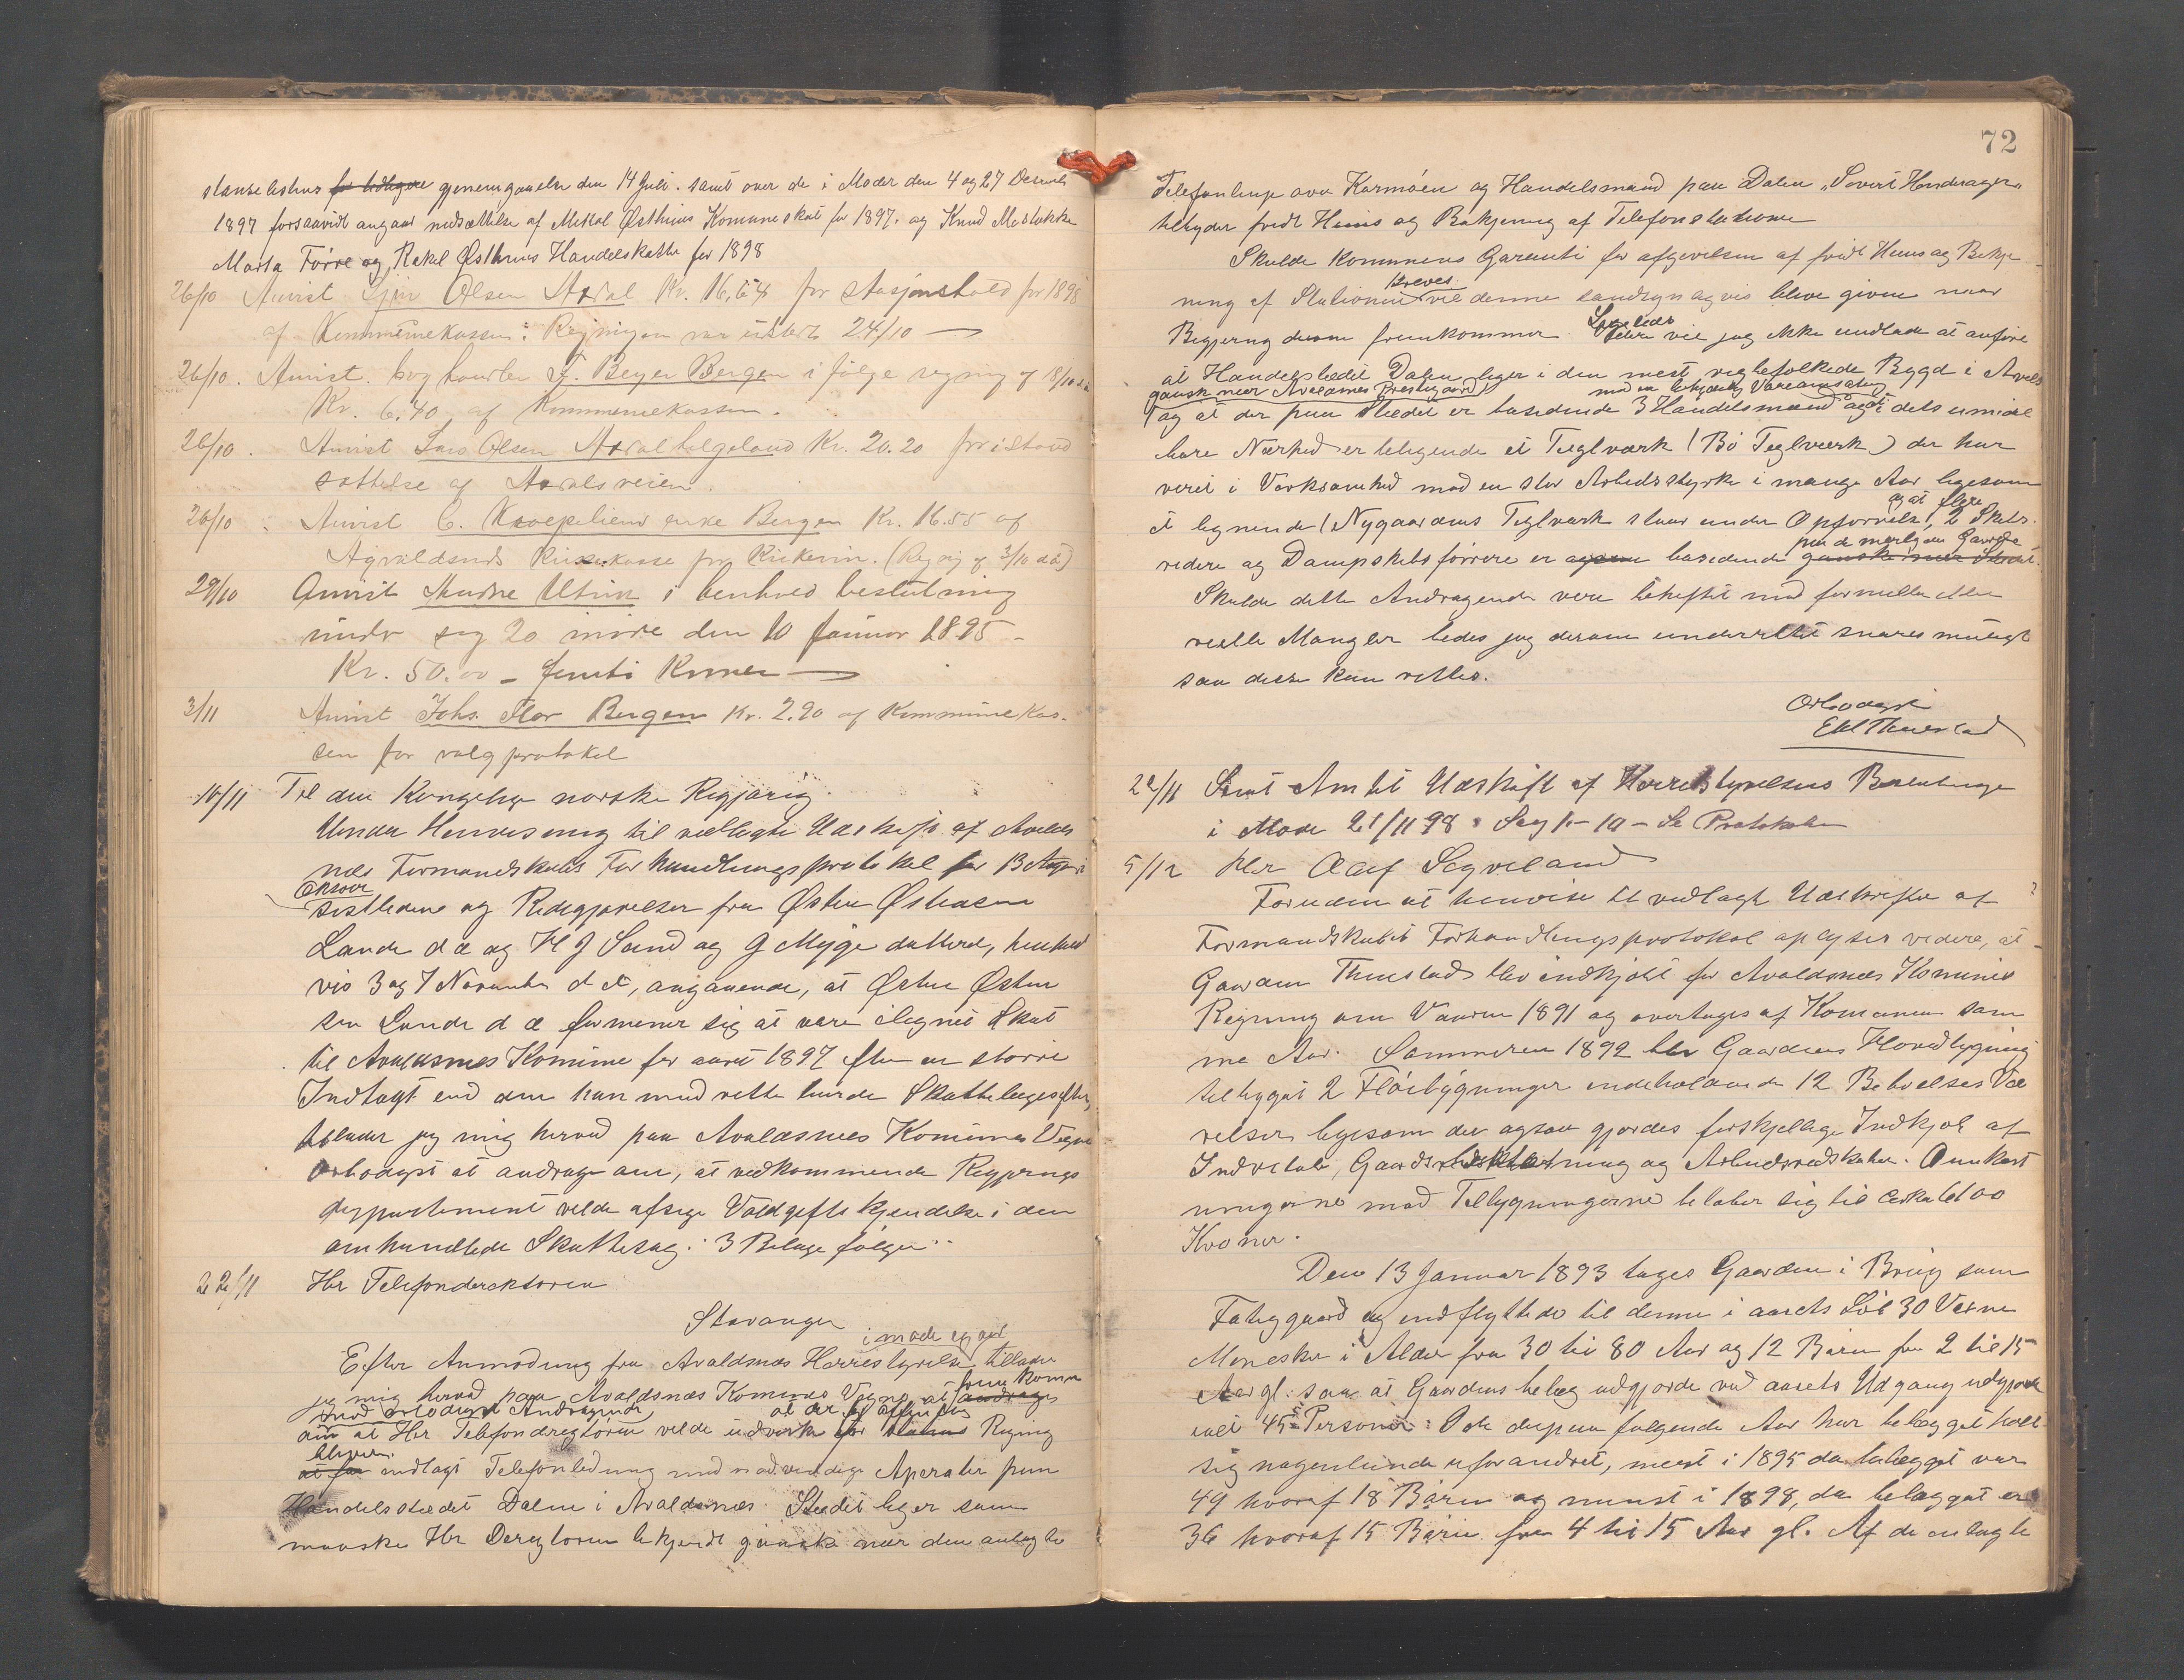 gjennemgaaelse den 14 Juli. samt over de i Møder den 4 og 27 Decemb
1897 forsaavidt angaar nedsættelse af Mikal Østhuus Komuneskat for 1897. og Knud
Marta Førre og Rakel Østhuus Handelskatte for 1898
26/10 Anvist Olsen Kr. 16,64 for for 1898
af Kommunekassen: Regningen var 24/10
26/10. Anvist. boghandler F. Beyer Bergen i følge regning af 18/10 d.a.
Kr. 6.40 af Kommunekassen.
26/10. Anvist Lars Olsen Helgeland Kr. 20.20 for istand
sættelse af
26/10 Anvist C. enke Bergen Kr. 16.55 af
Kirkekasse for Kirkevin. (Regnig af 3/10 d.a)
29/10 Anvist i henhold beslutning
under sag 20 møde den 10 Januar 1895 -
Kr. 50.00 - femti Kroner
3/11 Anvist Johs. Flor Bergen Kr. 2.90 af Kommunekas-
sen for valgprotokol
10/11 Til den Kongelige norske Regjering.
Under Henvisning til vedlagte Udskrift af Avalds
næs Formandskabs Forhandlingsprotokol for 13 August
sistledene og Redegjørelser fra Østen Østensen
Lande d æ og H J Sund og G Myge daterede, henhold
vis 3 og 7 November d A, angaaende, at Østen Østen
sen Lande d æ formener sig at være ilignet Skat
til Avaldsnes Komune for aaret 1897 efter en større
Indtægt end den han med rette burde Skattelægges efter,
tillader jeg mig herved paa Avaldsnes Komunes Vegne
ærbødigst at andrage om, at vedkommende Regjerings
departement vilde afsige Voldgifts Kjendelse i den
omhandlede Skattesag. 3 Bilage følger
22/11 Hr Telefondirektøren
Stavanger
Efter Anmodning fra Avaldsnæs Herredstyrelse i møde tillader
jeg mig herved paa Avaldsnæs Komunes Vegne at andrage frem komme
med ærbødigst Andragende
om at Hr Telefondirektøren vilde udvirke for Regning
bliver
at faa indlagt Telefonledning med nødvendige Aperater paa
Handelsstedet Dalen i Avaldsnæs. Stedet liger som
maaske Hr Derigtøren bekjendt ganske nær den anlagte
72
Telefonlinje over Karmøen og Handelsmand paa Dalen
tilbyder fridt Huus og Betjening af Telefonstationen
Skulde Kommunens Garanti for afgivelsen af fridt Huus og Betje
kreves
ning af Stationen vil denne sandsynligvis blive given naar
Begjering derom fremkommer. Ligeledes vil jeg ikke undlade at anføre
at Handelstedet Dalen liger i den mest vigbefolkede Bygd i Avalds
ganske nær Avaldsnes Prestegaard
og at der paa Stedet er bosidende 3 Handelsmænd og at i dets umidel
bare Nærhed er beligende et Teglværk (Bø Teglværk) der har
verit i Verksomhed med en stor Arbeidsstyrke i mange Aar ligesom
og at flere
et lignende (Nygaardens Teglværk staar under Opførelse, 2 Skibs
redere og Dampskibsførere er bosidende ganske nær Stedet
Skulde dette Andragende vere beheftet med formelle eller
reelle Mangler bedes jeg derom underrettet snarest muligt
saa disse kan rettes.
Ærbødigst
22/11 Sent Amtet Udskrift af Herredstyrelsens Beslutninge
i Møde 21/11 98. Sag 1 - 10 - Se Protokolen
5/12 Her Oluf Sigveland
Foruden at henvise til vedlagte Udskrifter af
Formandskabets Forhandlingsprotokol oplyses videre, at
Gaarden blev indkjøbt for Avaldsnæs Komunes
Regning om Vaaren 1891 og overtoges af Komunen sam
me Aar. Sommeren 1892 blev Gaardens Hovedbygning
tilbygget 2 Fløibygninger indeholdende 12 Beboelses Væ
relser ligesom der ogsaa gjordes forskjellige Indkjøb af
Indvetale, Gaards og Arbeidsredskaber. Omkost
ningerne med Tilbygningerne beløber sig til
Kroner.
Den 13 Januar 1893 toges Gaarden i Brug som
Fattiggaard og indflyttede til denne i aarets Løb 30 Voxne
Menesker i Alder fra 30 til 80 Aar og 12 Børn fra 2 til 15
Aar gl. saa at Gaardens belæg udgjorde ved aarets Udgang udgjorde
ialt 45 Personer. I de derpaa følgende Aar har belægget holt
sig nogenlunde uforandret, meest i 1895 da belægget var
49 hvoraf 18 Børn og minst i 1898, da belægget er
36 hvoraf 15 Børn fra 4 til 15 Aar gl. Af de anlagte